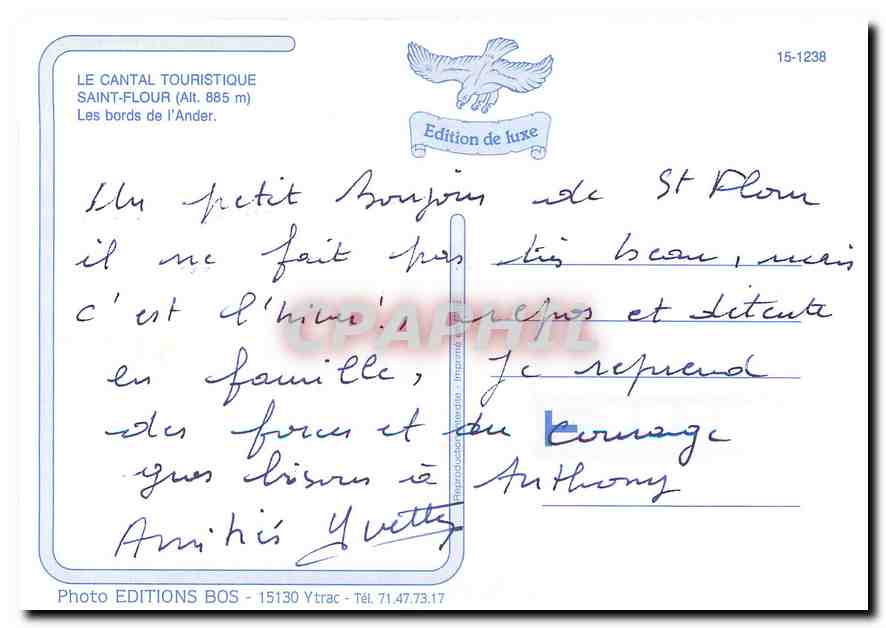 15-1238
LE CANTAL TOURISTIQUE
SAINT-FLOUR (Alt. 885 m)
Les bords de l'Ander.
Edition de luxe
Un petit Bonjour de St Flour
il ne fait pas très beau, mais
c'est l'hiver!, repos et détente
en famille, Je reprend
des forces et du courage
gros bisous à Anthony
Amitiés Yvette
CPAPHIL
Reproduction interdite - Imprimé
Photo EDITIONS BOS - 15130 Ytrac - Tél. 71.47.73.17